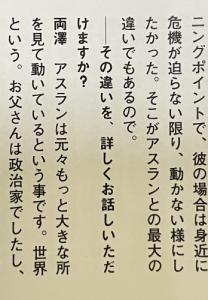 ニングポイントで、彼の場合は身近に
危機が迫らない限り、動かない様にし
たかった。そこがアスランとの最大の
違いでもあるので。
──その違いを、詳しくお話しいただ
けますか？
両澤　アスランは元々もっと大きな所
を見て動いているという事です。世界
という。お父さんは政治家でしたし、